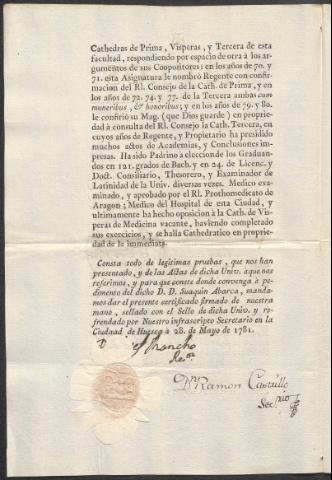 Cathedras de Prima, Visperas, y Tercera de esta
facultad, respondiendo por espacio de otra à los ar-
gumentos de sus Coopositores: en los años de 70. y
71. esta Asignatura le nombrò Regente con confir-
macion del Rl. Consejo de la Cath. de Prima, y en
los años de 72. 74. y 77. de la Tercera ambas cum
moneribus, & honoribus; y en los años de 79. y 80.
le confiriò su Mag. (que Dios guarde) en proprie-
dad à consulta del Rl. Consejo la Cath. Tercera, en
cuyos años de Regente, y Propietario ha presidido
muchos actos de Academias, y Conclusiones im-
presas. Ha sido Padrino à eleccion de los Graduan-
dos en 121. grados de Bach. y en 24. de Licenc. y
Doct. Consiliario, Thesorero, y Examinador de
Latinidad de la Univ. diversas veces. Medico exa-
minado, y aprobado por el Rl. Prothomedicato de
Aragon; Medico del Hospital de esta Ciudad, y
ultimamente ha hecho oposicion à la Cath. de Vis-
peras de Medicina vacante, haviendo completado
sus exercicios, y se halla Cathedratico en proprie-
dad de la immediata.
Consta todo de legitimas pruebas, que nos han
presentado, y de las Actas de dicha Univ. à que nos
referimos, y para que conste donde convenga à pe-
dimento del dicho D. D. Juaquin Abarca, manda-
mos dar el presente certificado firmado de nuestra
mano, sellado con el Sello de dicha Univ. y re-
frendado por Nuestro infrascripto Secretario en la
Ciudad de Huesca à 28. de Mayo de 1781.
Dn Ramon Castillo
Secrio